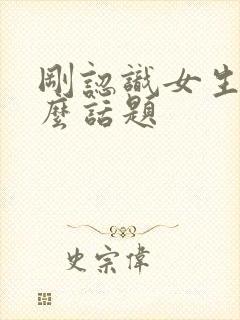 剛認識女生
麼話題
史宗偉